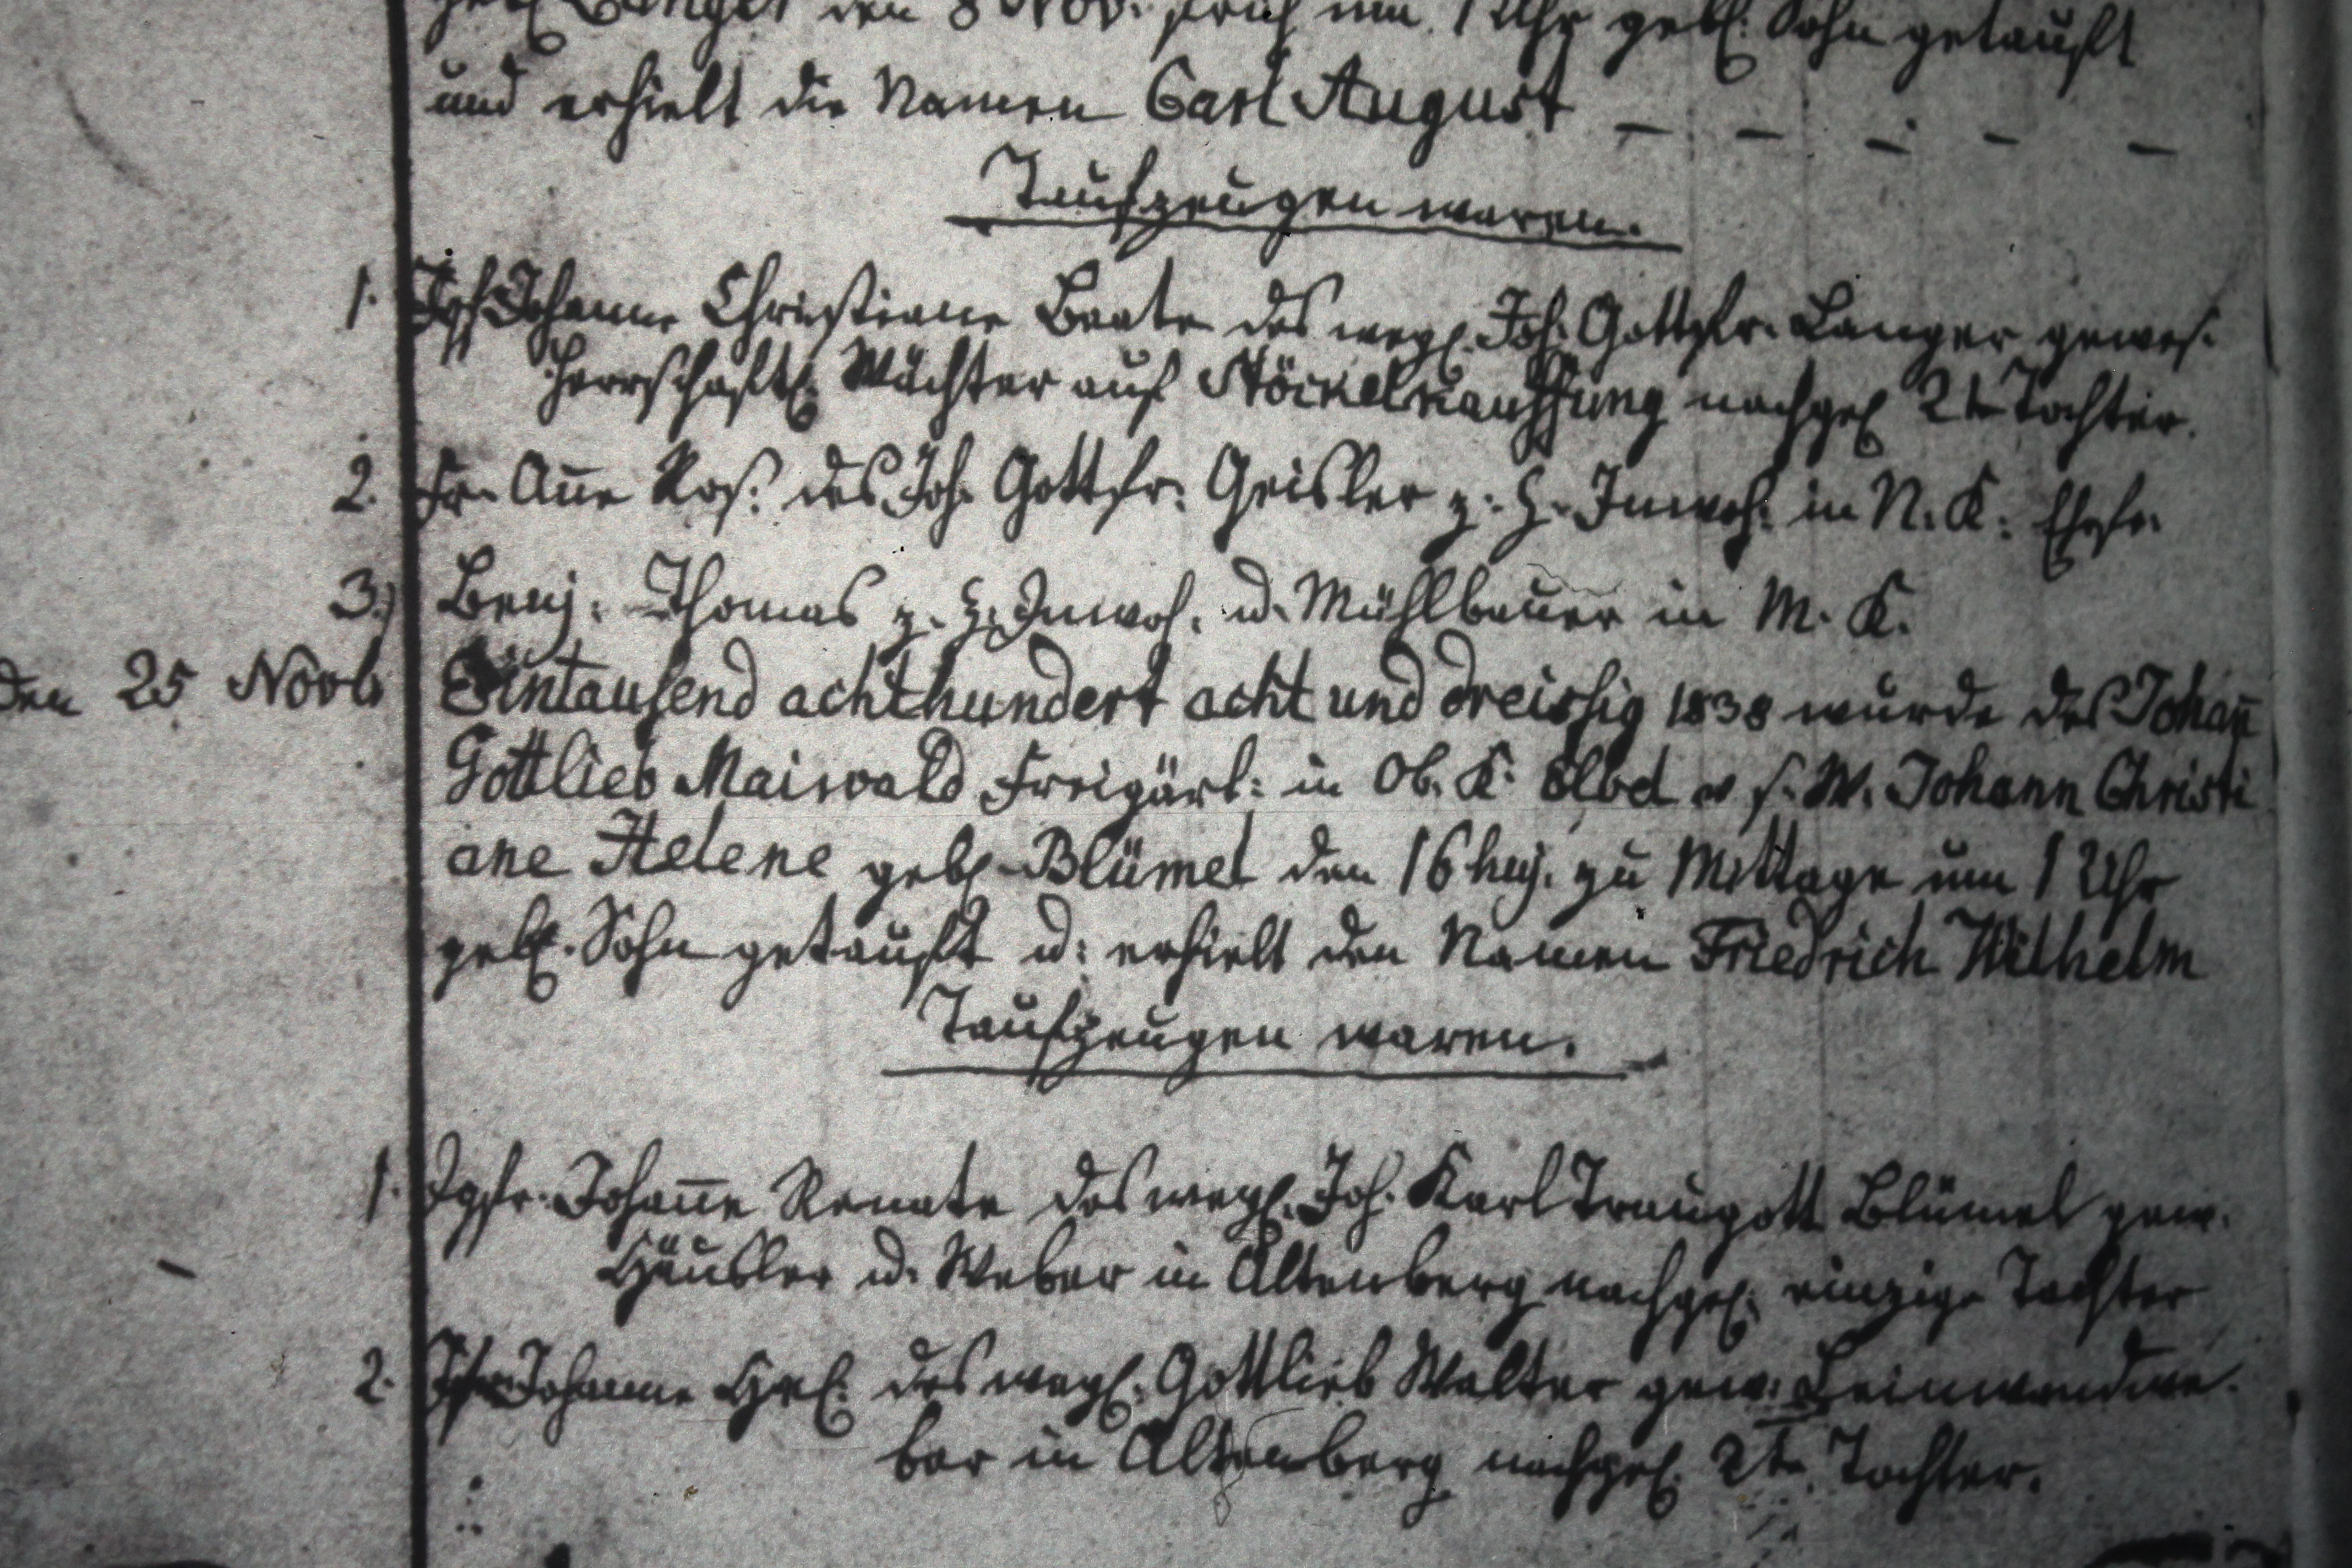 geb. Langer den 8 Nov. früh um 1 Uhr gebl. Sohn getauft
und erhielt die Namen Carl August _ _ _ _ _
Taufzeugen waren.
1. Jgf Johanne Christiane Beate des wegl. Joh. Gottfr. Langer gewes.
herrschaftl. Wächter auf Stöckelkauffung nachgel 2te Tochter.
2. Fr. Aṅe Ros. des Joh. Gottfr: Geisler z. H. Inwoh. in N. K. Ehefr.
3.) Benj. Thomas z. H. Inwoh. u. Mühlbauer in M. K.
den 25 Novb Eintausend achthundert acht und dreissig 1838 wurde des Johan̄
Gottlieb Maiwald Freigärt: in Ob. K. v s. W. Johann Christi
ane Helene gebl. Blümel den 16 huj. zu Mittage um 1 Uhr
gebl. Sohn getauft u: erhielt den Namen Friedrich Wilhelm
Taufzeugen waren.
1. Jgfr. Johan̄e Renate des wegl. Joh. Karl Traugott Blümel gew.
Häusler u. Weber in Altenberg nachgel. einzige Tochter
2. Jfr Johanne Hel. des wegl. Gottlieb Walter gew. Leinwandwe
ber in Altenberg nachgel. 2te Tochter.